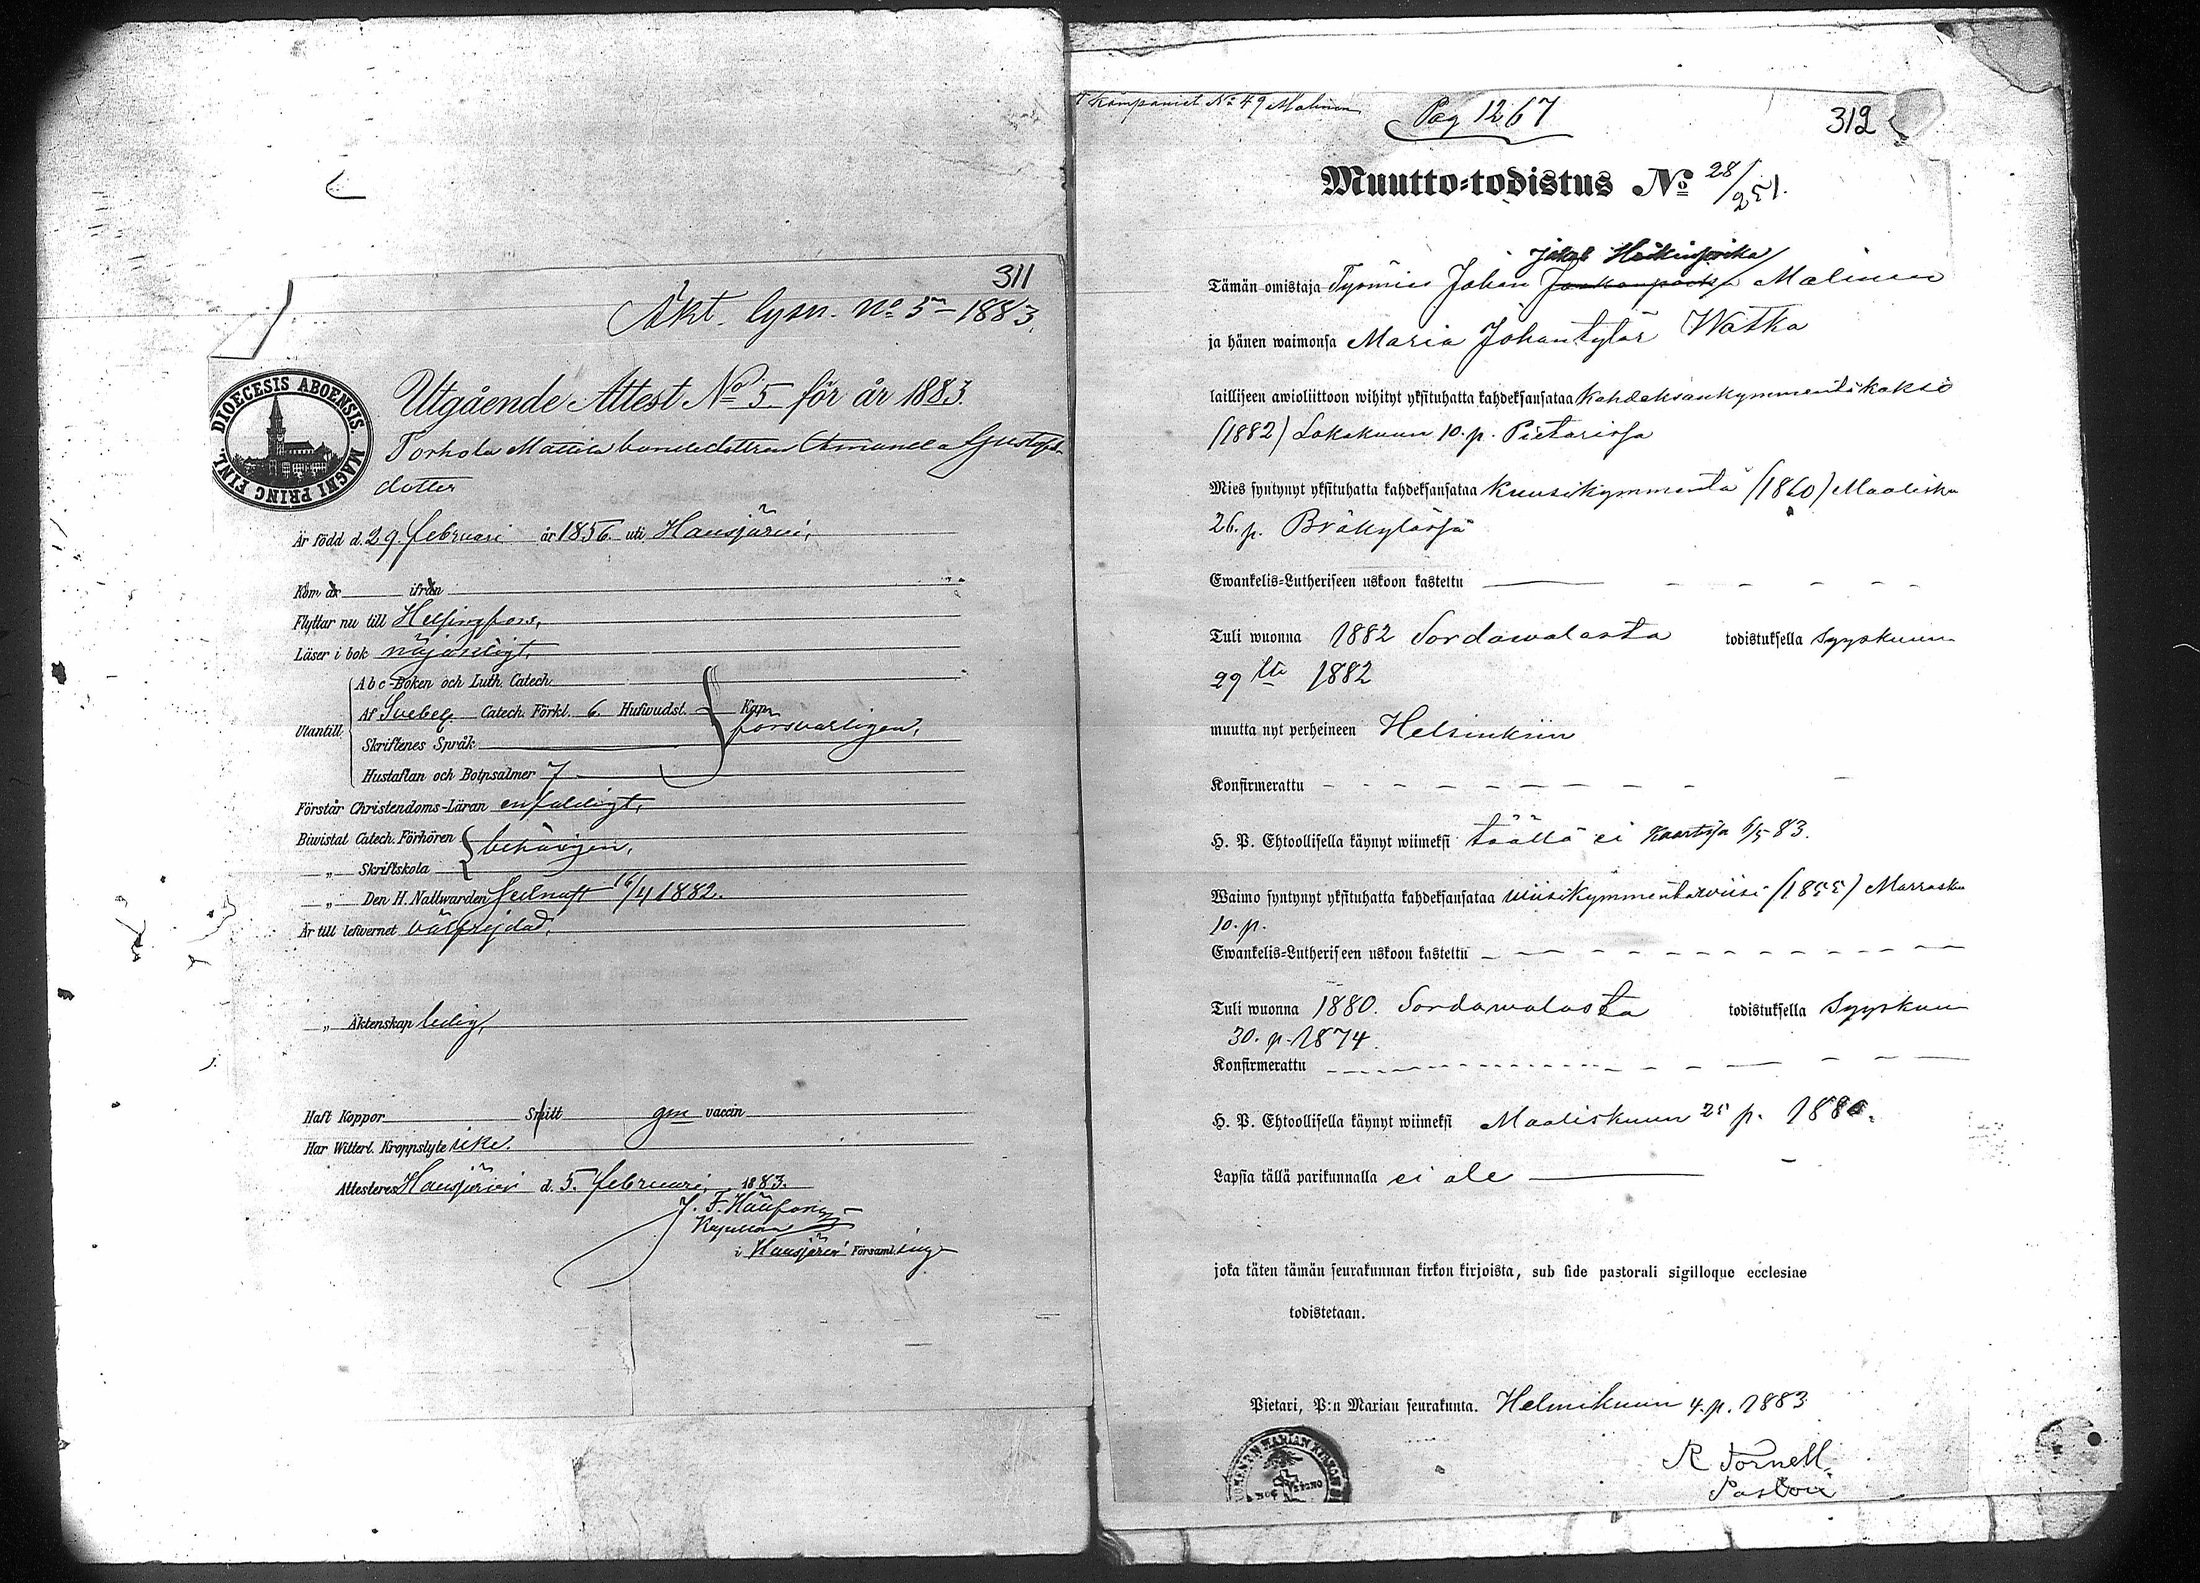 311
Äkt. lysn. No 5 – 1883.
DIOECESIS ABOENSIS MAGNI PRINC FINL.
Utgående Attest No 5 för år 1883.
Torhola Mattila bondedottren Amanda Gustafs-
dotter
Är född d. 29 februari år 1856 uti Hausjärvi,
Kom år ifrån
Flyttar nu till Helsingfors,
Läser i bok nöjaktigt,
Utantill
Abc-Boken och Luth. Catech.
Af Svebel. Catech. Förkl. 6 Hufwudst. Kap.
försvarligen,
Skriftenes Språk
Hustaflan och Botpsalmer 7
Förstår Christendoms-Läran enfaldigt,
Biwistat Catech. Förhören behörigen,
„ Skriftskola
„ Den H. Nattwarden sednast 16/4 1882.
Är till lefwernet välfrejdad,
„ Äktenskap ledig,
Haft Koppor Smitt gm vaccin
Har Witterl. Kroppslyte icke.
Attesteres Hausjärvi d. 5 februari, 1883.
J. F.
Kapellan
i Hausjärvi Församling
Kompaniet No 49 Malinen
Pag 1267
312
Muutto-todistus No 28/251.
Jakob Heikinpoika
Tämän omistaja Työmies Johan Malinen
ja hänen waimonsa Maria Johantytär Watka
lailliseen awioliittoon wihityt yksituhatta kahdeksansataa kahdeksankymmentäkaksi
(1882) Lokakuun 10. p. Pietarissa
Mies syntynyt yksituhatta kahdeksansataa kuusikymmentä (1860) Maalisku
26. p. Bräkylässä
Ewankelis-Lutheriseen uskoon kastettu
Tuli wuonna 1882 Sordawalasta todistuksella Syyskuun
29 ltä 1882
muutta nyt perheineen Helsinkiin
Konfirmerattu
H. P. Ehtoollisella käynyt wiimeksi täällä ei Kaartissa 6/5 83.
Waimo syntynyt yksituhatta kahdeksansataa wiisikymmentäwiisi (1855) Marrasku
10. p.
Ewankelis-Lutheriseen uskoon kastettu
Tuli wuonna 1880. Sordawalasta todistuksella Syyskuun
30. p. 1874.
Konfirmerattu
H. P. Ehtoollisella käynyt wiimeksi Maaliskuun 25 p. 1880.
Lapsia tällä parikunnalla ei ole
joka täten tämän seurakunnan kirkon kirjoista, sub fide pastorali sigilloque ecclesiae
todistetaan.
Pietari, P:n Marian seurakunta. Helmikuun 4. p. 1883
MARIAN
R Tornell,
Pastori